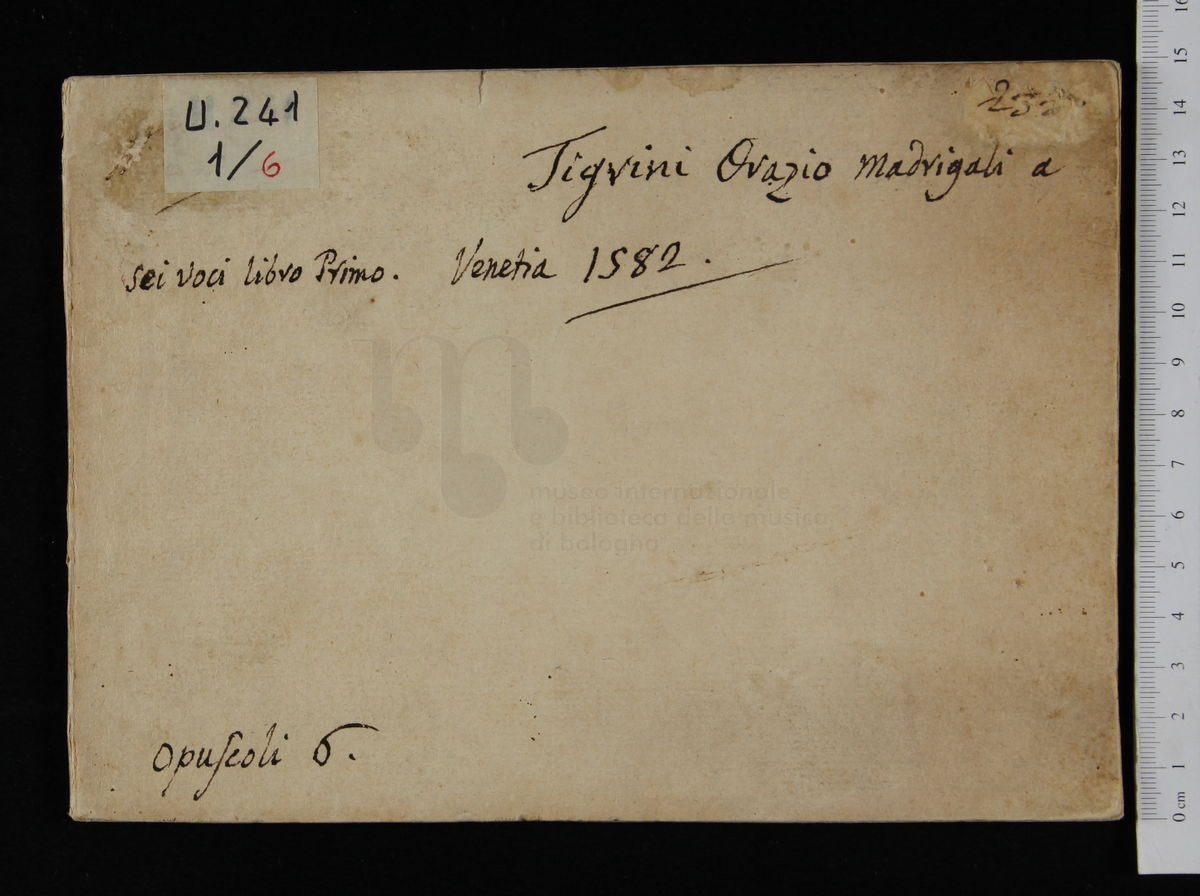 U.241
1/6
Tigrini Orazio Madrigali a
sei voci libro Primo. Venetia 1582.
museo internazionale
e biblioteca della musica
di bologna
Opuscoli 6.
0 cm 1 2 3 4 5 6 7 8 9 10 11 12 13 14 15 16